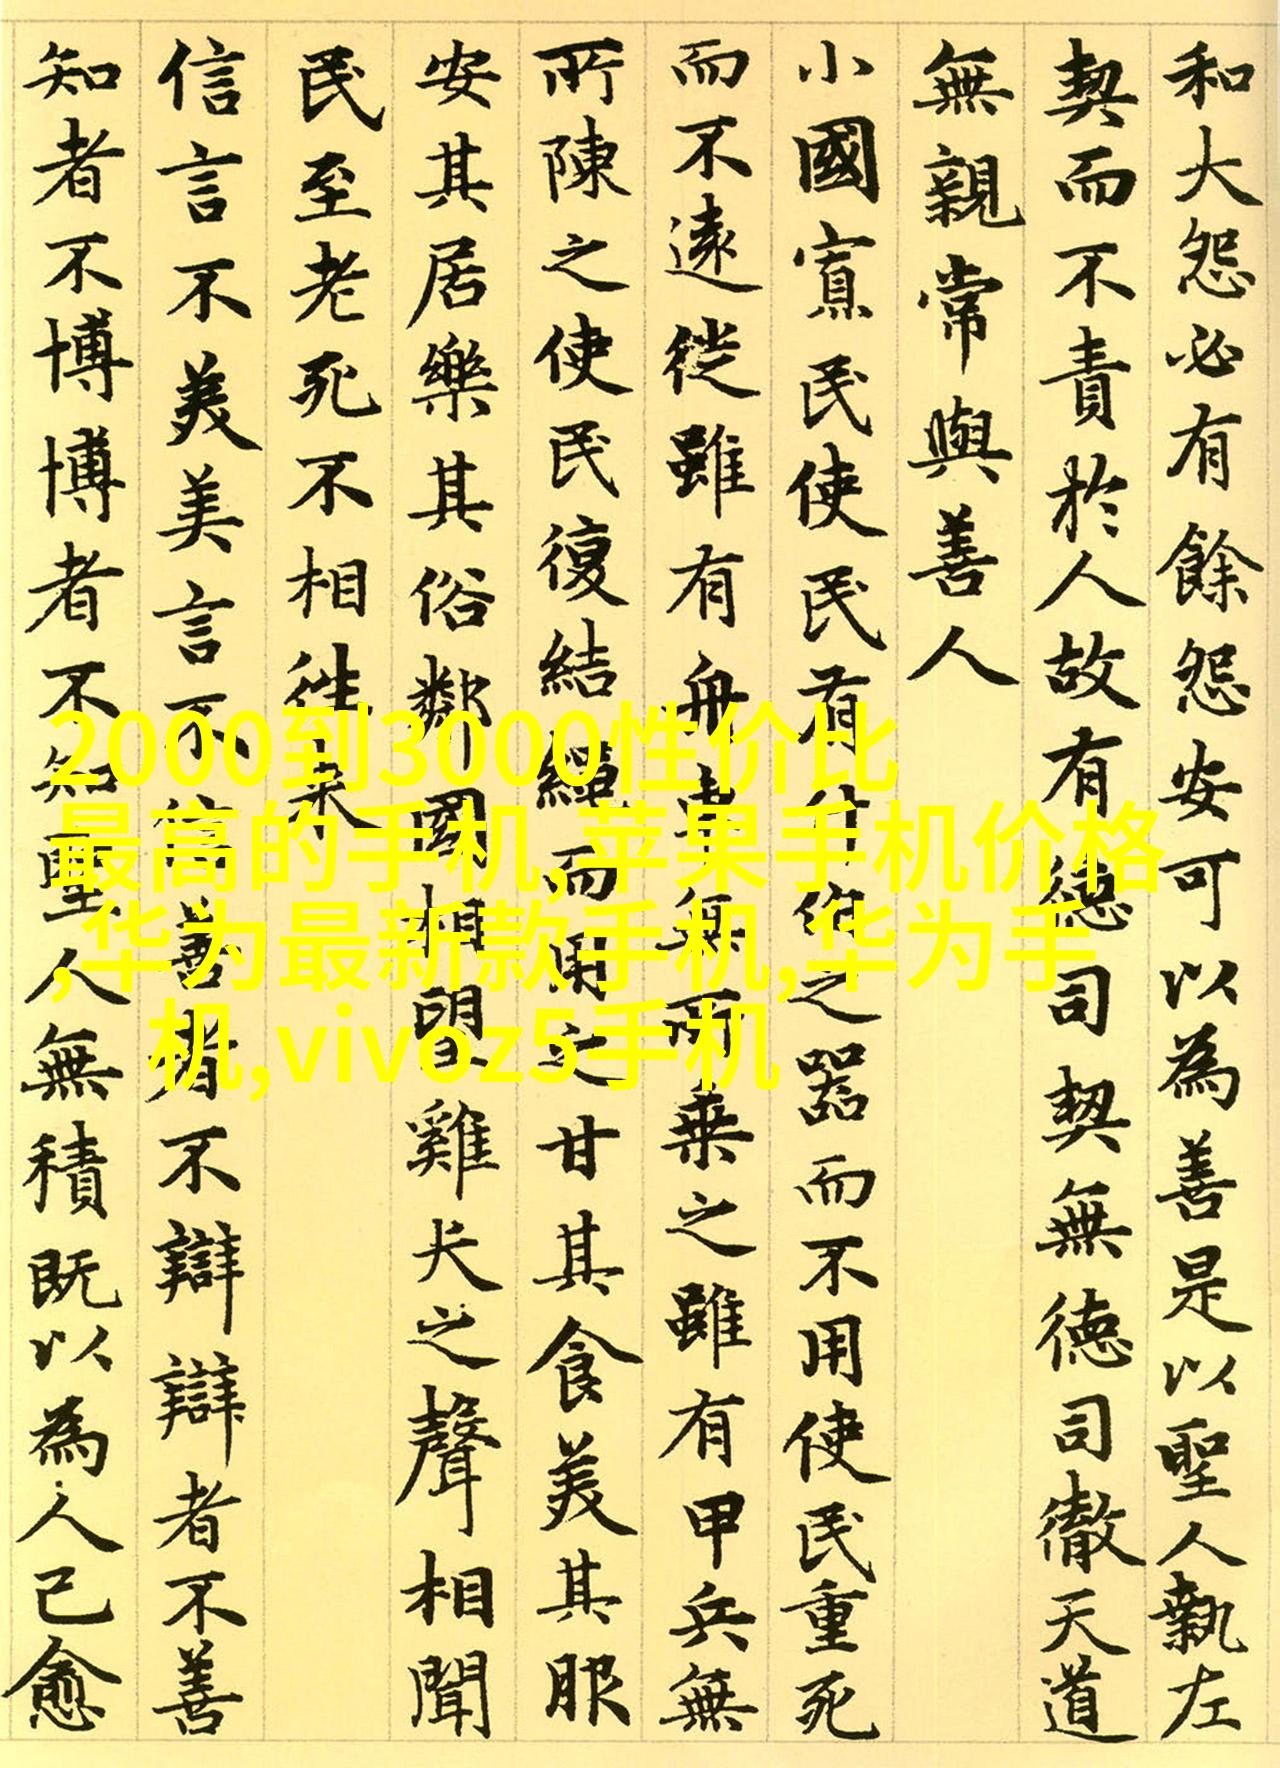 和大怨必有餘怨安可以為善是以聖人執左
契而不責於人故有德司契無德司徹天道
無親常與善人
小國寡民使民有什伯之器而不用使民重死
而不遠徙雖有舟車無所乗之雖有甲兵無
所陳之使民復結繩而用之甘其食美其服
安其居樂其俗鄰國相望雞犬之聲相聞
民至老死不相往来
信言不美美言不信善者不辯辯者不善
知者不博博者不知聖人無積既以為人己愈
2000到3000性价比
最高的手机,苹果手机价格
,华为最新款手机,华为手
机,vivoz5手机